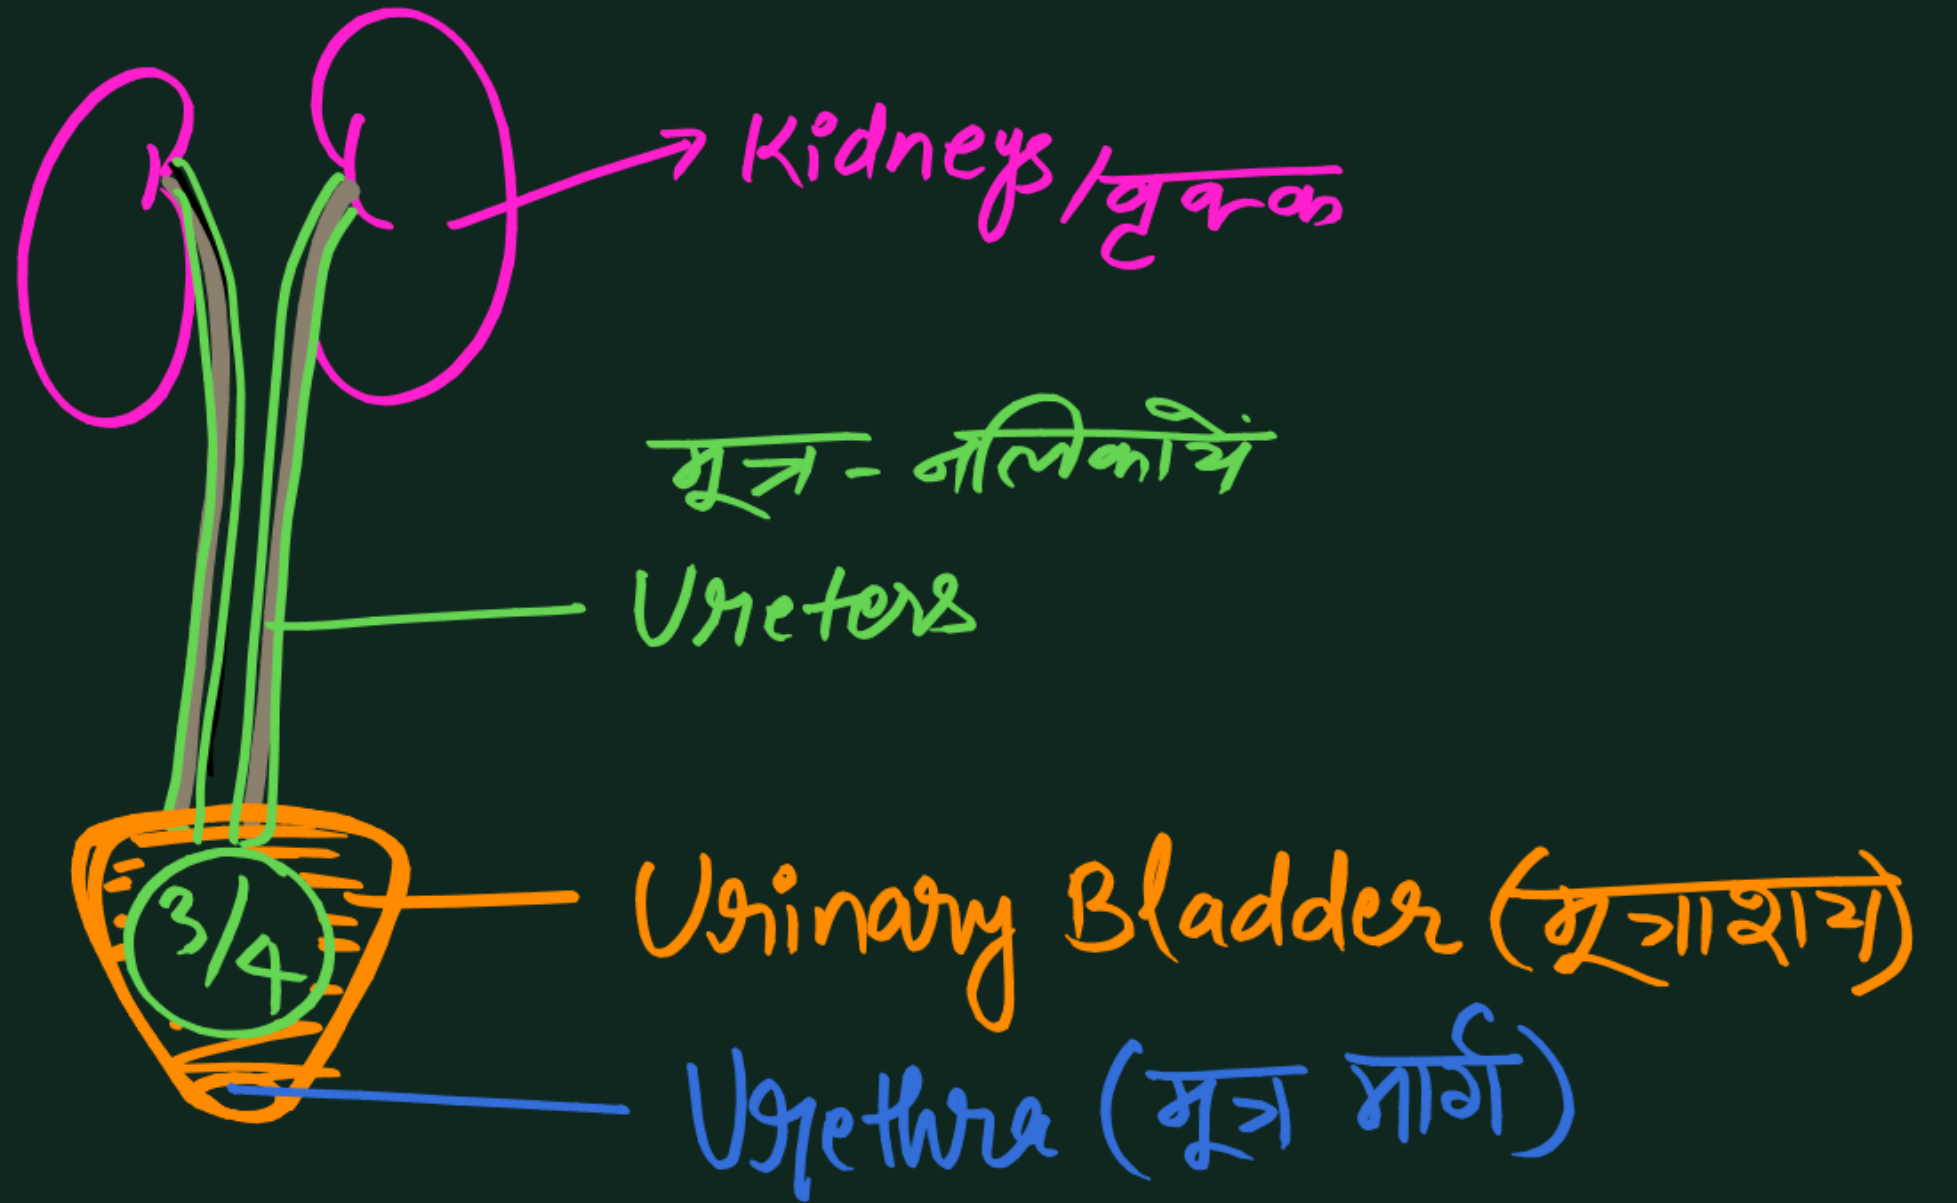 Kidneys/वृक्क
मूत्र-नलिकायें
Ureters
3/4
Urinary Bladder (मूत्राशय)
Urethra (मूत्र मार्ग)